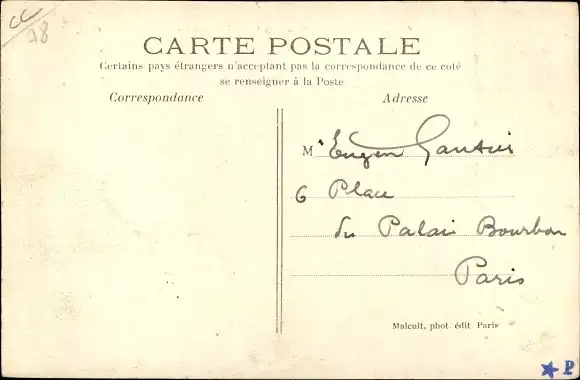 CC
78
CARTE POSTALE
Certains pays étrangers n'acceptant pas la correspondance de ce coté
se renseigner à la Poste
Correspondance
Adresse
Mr Eugen Gautier
6 Place
du Palais Bourbon
Paris
Malcuit, phot. édit Paris
P